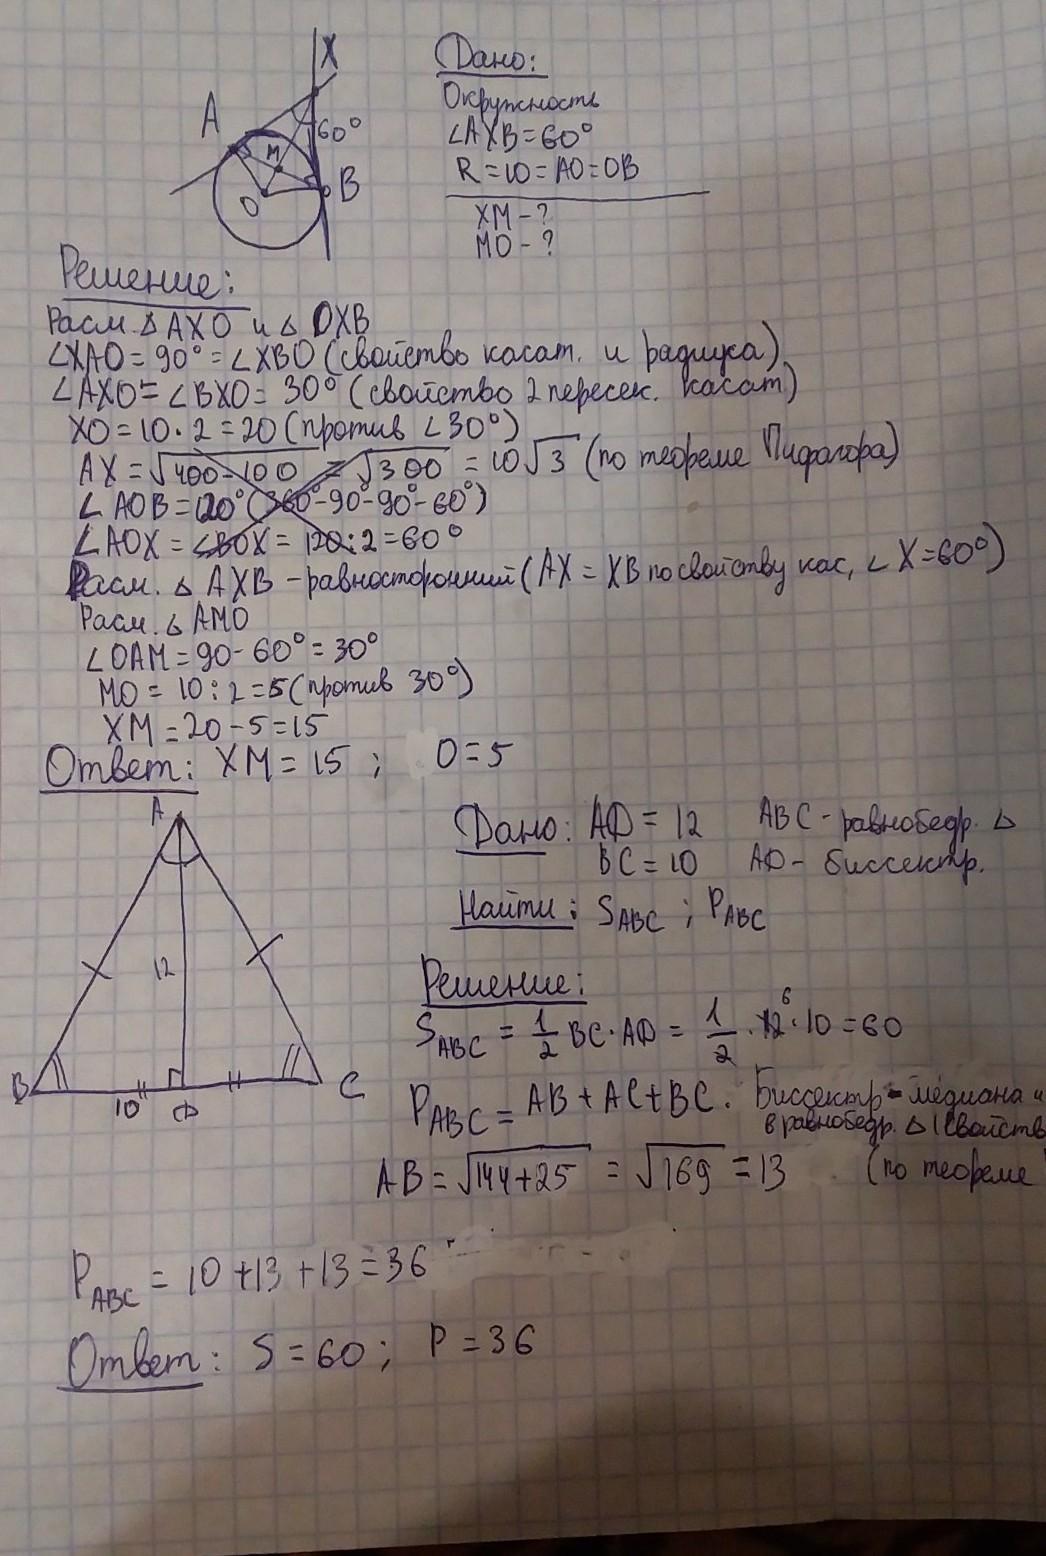 X
A
60°
M
B
O
Дано:
Окружность
∠AXB=60°
R=10=AO=OB
XM-?
MO-?
Решение:
Расм. △ AXO и △ OXB
∠XAO=90°=∠XBO (свойство касат. и радиуса)
∠AXO=∠BXO=30° (свойство 2 пересек. касат)
XO=10·2=20 (против ∠30°)
AX=√400-100=√300=10√3 (по теореме Пифагора)
∠AOB=120° (360°-90°-90°-60°)
∠AOX=∠BOX=120:2=60°
Расм. △ AXB-равносторонний (AX=XB по свойству кас, ∠X=60°)
Расм. △ AMO
∠OAM=90-60°=30°
MO=10:2=5 (против 30°)
XM=20-5=15
Ответ: XM=15; O=5
A
12
B
10
D
C
Дано: AD=12 ABC-равнобедр. △
BC=10 AD-биссектр.
Найти: S ABC; P ABC
Решение:
S ABC = 1/2 BC·AD = 1/2·12·10=60
6
P ABC = AB+AC+BC. Биссектр-медиана и
в равнобедр. △ (свойств
AB=√144+25=√169=13 (по теореме
P ABC=10+13+13=36
Ответ: S=60; P=36